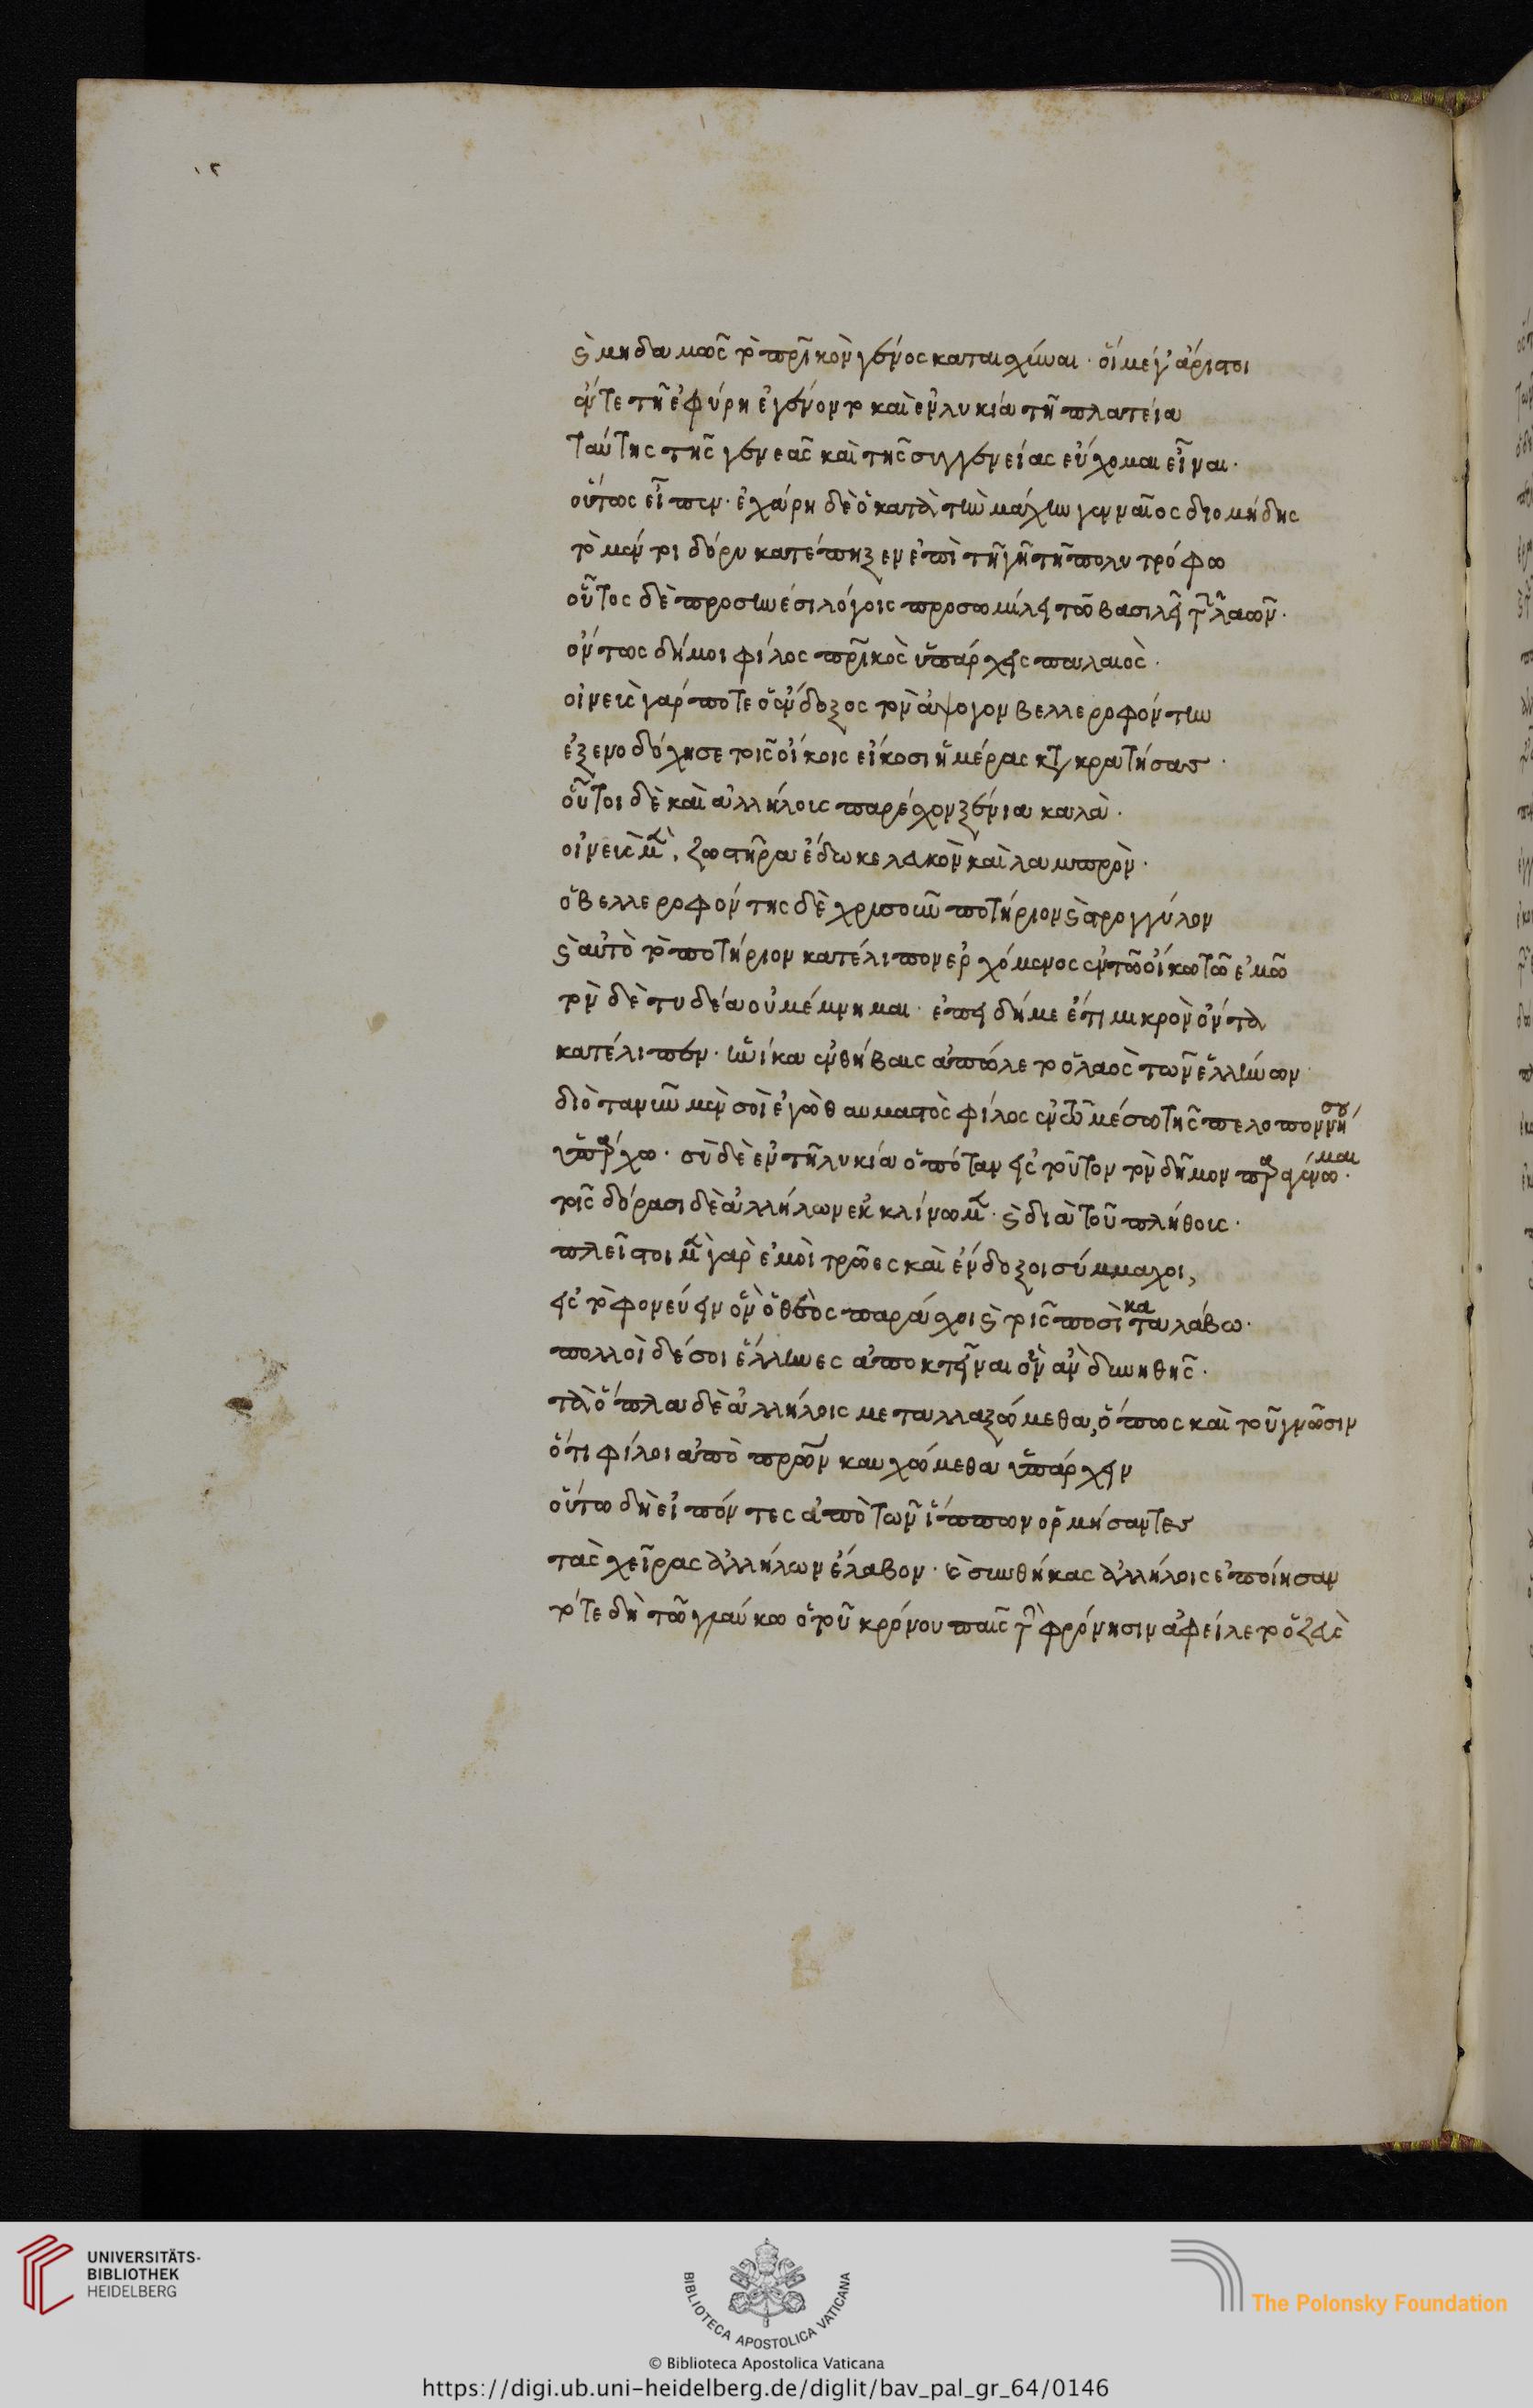 καὶ μηδαμῶς τὸ πατρικὸν γένος καταισχύναι· οἳ μέγ' ἄριστοι
ἔν τε τῇ ἐφύρη ἐγένοντο καὶ ἐν λυκία τῇ πλατεία
ταύτης τῆς γενεᾶς καὶ τῆς συγγενείας εὔχομαι εἶναι·
οὕτως εἶπεν· ἐχάρη δὲ ὁ κατὰ τὴν μάχην γενναῖος διομήδης
τὸ μέν τι δόρυ κατέπηξεν ἐπὶ τῇ γῇ τῇ πολυτρόφω
οὗτος δὲ προσηνέσι λόγοις προσωμίλει τῶ βασιλεῖ τῶν λαῶν·
ὄντως δή μοι φίλος πατρικὸς ὑπάρχεις παλαιὸς·
οἰνεὺς γάρ ποτε ὁ ἔνδοξος τὸν ἄψογον βελλεροφόντην
ἐξενοδόχησε τοῖς οἴκοις εἴκοσι ἡμέρας κατακρατήσας·
οὗτοι δὲ καὶ ἀλλήλοις παρέχον ξένια καλὰ·
οἰνεὺς μὲν, ζωστῆρα ἔδωκε λευκὸν καὶ λαμπρὸν·
ὁ βελλεροφόντης δὲ χρυσοῦν ποτήριον καὶ στρογγύλον
καὶ αὐτὸ τὸ ποτήριον κατέλιπον ἐρχόμενος ἐν τῶ οἴκω τῶ ἐμῶ
τὸν δὲ τυδέα οὐ μέμνημαι· ἐπεὶ δή με ἔτι μικρὸν ὄντα
κατέλιπεν· ἡνίκα ἐν θήβαις ἀπώλετο ὁ λαὸς τῶν ἑλλήνων
διὸ τανῦν μὲν σοὶ ἐγὼ θαυμαστὸς φίλος ἐν τῶ μέσω τῆς πελοποννήσου
ὑπάρχω· σὺ δὲ ἐν τῇ λυκία ὁπόταν εἰς τοῦτον τὸν δῆμον παραγένωμαι·
τοῖς δόρασι δὲ ἀλλήλων ἐκκλίνωμεν· καὶ διὰ τοῦ πλήθους·
πλεῖστοι μὲν γὰρ ἐμοὶ τρῶες καὶ ἔνδοξοι σύμμαχοι,
εἰς τὸ φονεύειν ὃν ὁ θεὸς παράσχοι καὶ τοῖς ποσὶ καταλάβω·
πολλοὶ δέ σοι ἕλληνες ἀποκτεῖναι ὃν ἂν δυνηθῇς·
τὰ ὅπλα δὲ ἀλλήλοις μεταλλαξώμεθα, ὅπως καὶ τοῦ γνῶσιν
ὅτι φίλοι ἀπὸ πατρῶν καυχώμεθα ὑπάρχειν
οὕτω δὴ εἰπόντες ἀπὸ τῶν ἵππων ὁρμήσαντες
τὰς χεῖρας ἀλλήλων ἔλαβον· καὶ συνθήκας ἀλλήλοις ἐποίησαν
τότε δὴ τῶ γλαύκω ὁ τοῦ κρόνου παῖς τὴν φρόνησιν ἀφείλετο ὁ ζεὺς
UNIVERSITÄTS-
BIBLIOTHEK
HEIDELBERG
BIBLIOTECA APOSTOLICA VATICANA
The Polonsky Foundation
© Biblioteca Apostolica Vaticana
https://digi.ub.uni-heidelberg.de/diglit/bav_pal_gr_64/0146